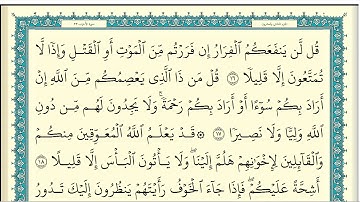 قُل لَّن يَنفَعَكُمُ ٱلْفِرَارُ إِن فَرَرْتُم مِّنَ ٱلْمَوْتِ أَوِ ٱلْقَتْلِ وَإِذًا لَّا
تُمَتَّعُونَ إِلَّا قَلِيلًا ١٦ قُلْ مَن ذَا ٱلَّذِى يَعْصِمُكُم مِّنَ ٱللَّهِ إِنْ
أَرَادَ بِكُمْ سُوٓءًا أَوْ أَرَادَ بِكُمْ رَحْمَةً ۚ وَلَا يَجِدُونَ لَهُم مِّن دُونِ
ٱللَّهِ وَلِيًّا وَلَا نَصِيرًا ١٧ ۞ قَدْ يَعْلَمُ ٱللَّهُ ٱلْمُعَوِّقِينَ مِنكُمْ
وَٱلْقَآئِلِينَ لِإِخْوَٰنِهِمْ هَلُمَّ إِلَيْنَا ۖ وَلَا يَأْتُونَ ٱلْبَأْسَ إِلَّا قَلِيلًا ١٨
أَشِحَّةً عَلَيْكُمْ ۖ فَإِذَا جَآءَ ٱلْخَوْفُ رَأَيْتَهُمْ يَنظُرُونَ إِلَيْكَ تَدُورُ